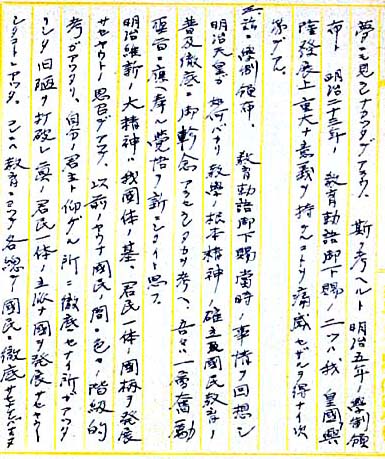 夢ニモ見ヒナカツタデアラウ。斯ク考ヘルト明治五年ノ學制領
布ト、明治二十三年ノ教育勅語御下賜ノ二ツハ我ガ皇國興
隆發展上重大ナ意義ヲ持ケルコトヲ痛感セザルヲ得ナイ次
第デアル。
玆ニ御領布、教育勅語御下賜當時ノ事情ヲ回想シ
明治天皇ガ如何バカリ教學ノ根本精神ノ確立及國民教育ノ
普及徹底ニ御軫念アラセレタカヲ考ヘ、吾々ハ一層奮勵
聖旨ニ應ヘ奉ル覺悟ヲ新ニシタイト思フ。
明治維新ノ大精神ハ我國体ノ基、君民一体ノ國柄ヲ發展
サセヤウト思召デアツタ。以前ノヤウナ國民ノ間ニ色々ノ階級的
考ガアツタリ、自分ノ君主ト仰グル所ニ徹底セナイ所ガアツタ
リシタ旧陋ヲ打破シ真ノ君民一体ノ立派ナ國ヲ發展サセヤウト
シタコトデアツタ。コレハ教育ニヨツテ各總テノ國民ニ徹底サセナケレバナラヌ